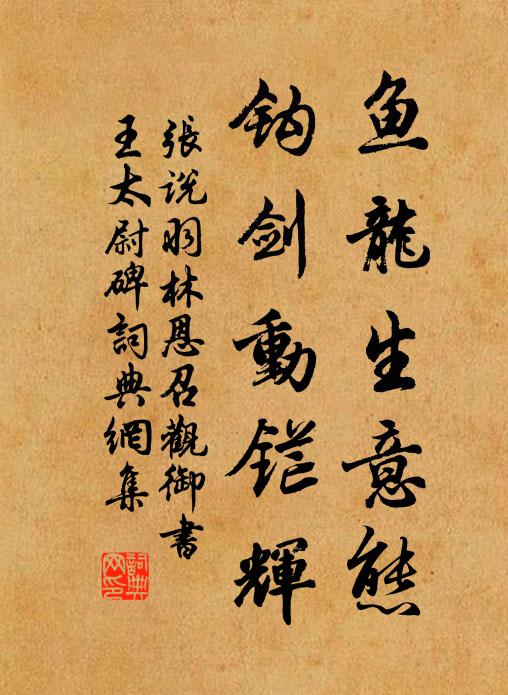 鱼龍生意態
鈎劍動鋩輝
張説羽林恩召觀御書
王太尉碑詞典網集
詞典
网印